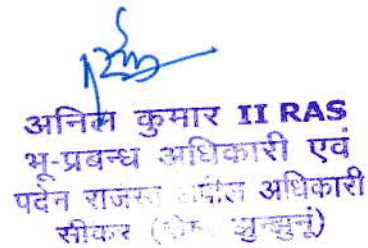 अनिल कुमार II RAS
भू-प्रबन्ध अधिकारी एवं
पदेन राजस्व अपील अधिकारी
सीकर (झुन्झुनूं)